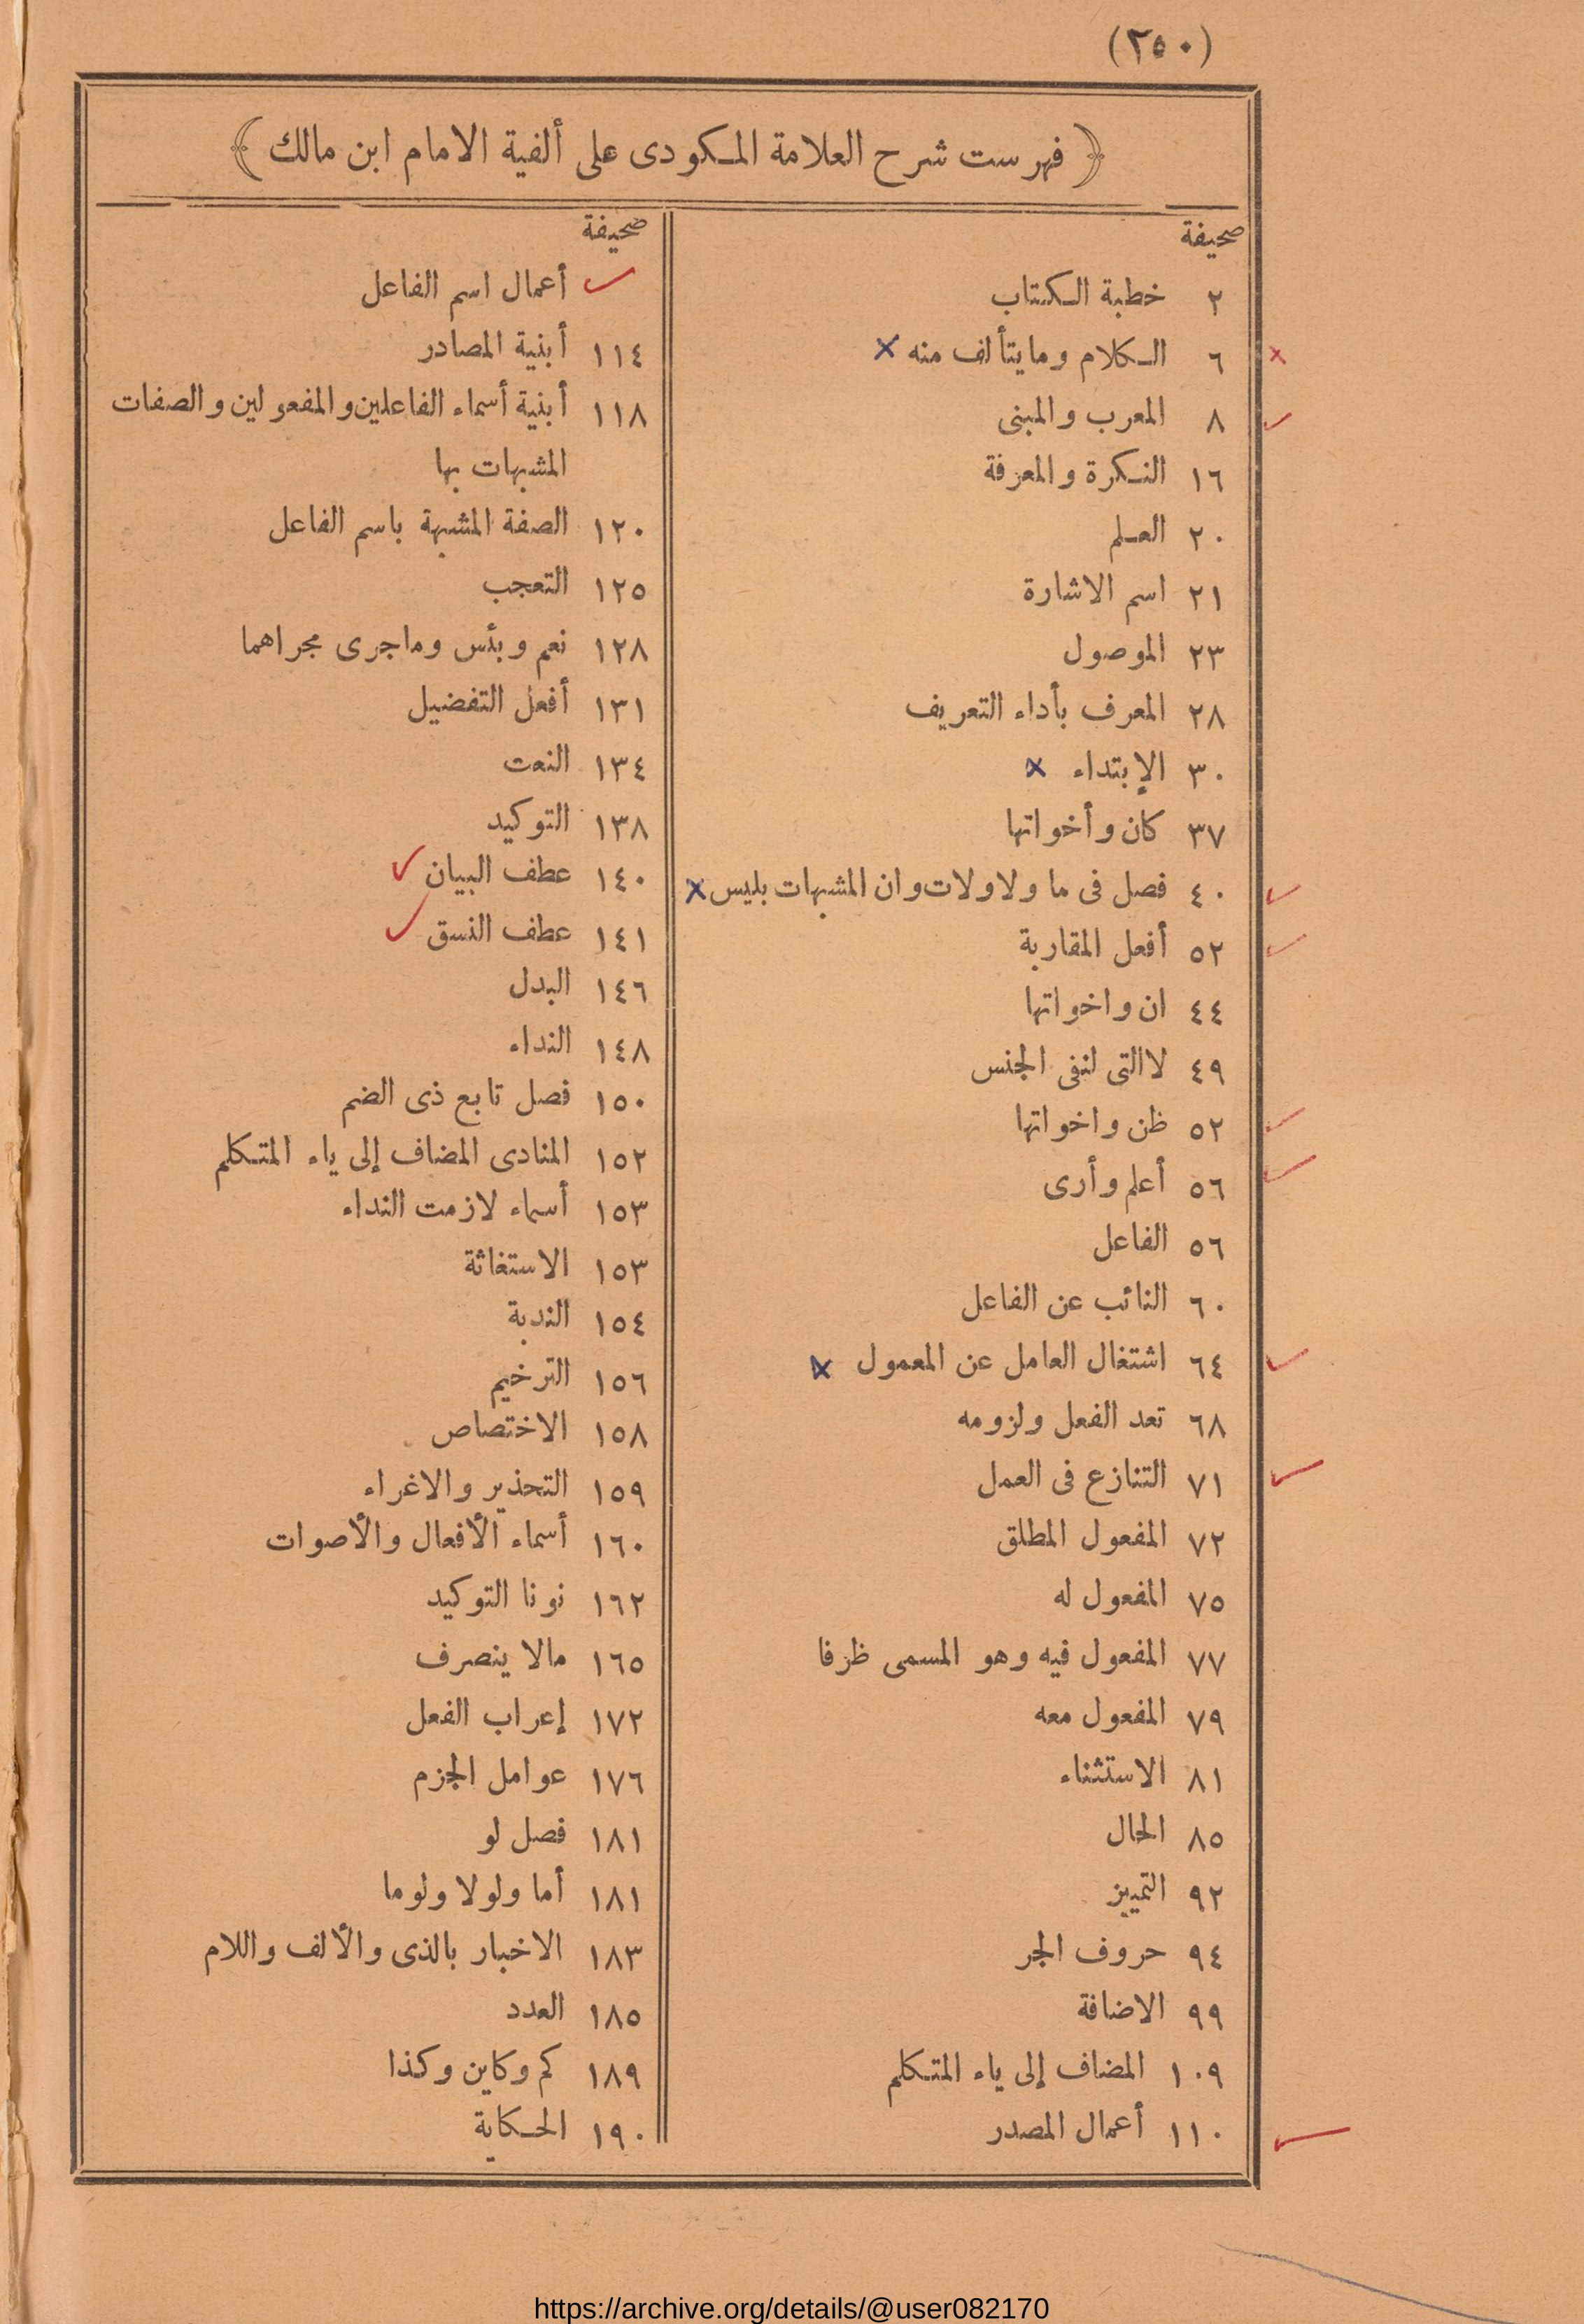 (٢٥٠)
﴿ فهرست شرح العلامة المكودى على ألفية الامام ابن مالك ﴾
صحيفة
٢ خطبة الكتاب
٦ الكلام وما يتألف منه
٨ المعرب والمبنى
١٦ النكرة والمعرفة
٢٠ العلم
٢١ اسم الاشارة
٢٣ الموصول
٢٨ المعرف بأداء التعريف
٣٠ الإبتداء
٣٧ كان وأخواتها
٤٠ فصل فى ما ولا ولات وان المشبهات بليس
٥٢ أفعل المقاربة
٤٤ ان واخواتها
٤٩ لا التى لنفى الجنس
٥٢ ظن واخواتها
٥٦ أعلم وأرى
٥٦ الفاعل
٦٠ النائب عن الفاعل
٦٤ اشتغال العامل عن المعمول
٦٨ تعد الفعل ولزومه
٧١ التنازع فى العمل
٧٢ المفعول المطلق
٧٥ المفعول له
٧٧ المفعول فيه وهو المسمى ظرفا
٧٩ المفعول معه
٨١ الاستثناء
٨٥ الحال
٩٢ التمييز
٩٤ حروف الجر
٩٩ الاضافة
١٠٩ المضاف إلى ياء المتكلم
١١٠ أعمال المصدر
صحيفة
أعمال اسم الفاعل
١١٤ أبنية المصادر
١١٨ أبنية أسماء الفاعلين والمفعولين والصفات
المشبهات بها
١٢٠ الصفة المشبهة باسم الفاعل
١٢٥ التعجب
١٢٨ نعم وبئس وماجرى مجراهما
١٣١ أفعل التفضيل
١٣٤ النعت
١٣٨ التوكيد
١٤٠ عطف البيان
١٤١ عطف النسق
١٤٦ البدل
١٤٨ النداء
١٥٠ فصل تابع ذى الضم
١٥٢ المنادى المضاف إلى ياء المتكلم
١٥٣ أسماء لازمت النداء
١٥٣ الاستغاثة
١٥٤ الندبة
١٥٦ الترخيم
١٥٨ الاختصاص
١٥٩ التحذير والاغراء
١٦٠ أسماء الأفعال والأصوات
١٦٢ نونا التوكيد
١٦٥ مالا ينصرف
١٧٢ إعراب الفعل
١٧٦ عوامل الجزم
١٨١ فصل لو
١٨١ أما ولولا ولوما
١٨٣ الاخبار بالذى والألف واللام
١٨٥ العدد
١٨٩ كم وكاين وكذا
١٩٠ الحكاية
https://archive.org/details/@user082170